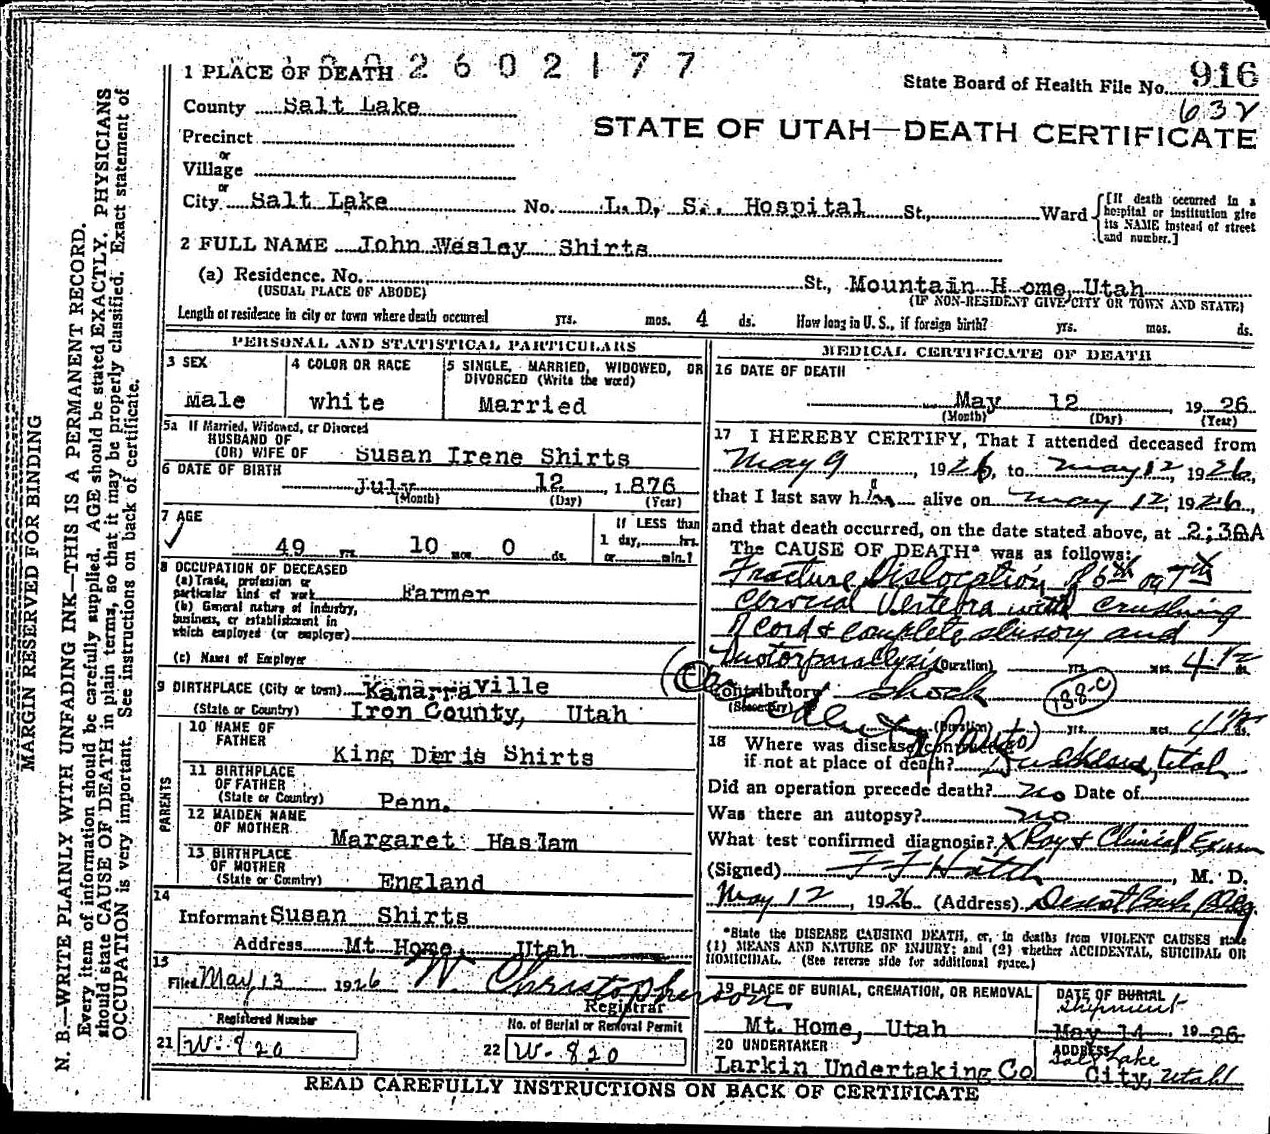 MARGIN RESERVED FOR BINDING
N. B.—WRITE PLAINLY WITH UNFADING INK—THIS IS A PERMANENT RECORD.
Every item of information should be carefully supplied. AGE should be stated EXACTLY. PHYSICIANS
should state CAUSE OF DEATH in plain terms, so that it may be properly classified. Exact statement of
OCCUPATION is very important. See instructions on back of certificate.
2602177
1 PLACE OF DEATH
State Board of Health File No. 916
632
County Salt Lake
STATE OF UTAH—DEATH CERTIFICATE
Precinct
or
Village
or
City Salt Lake No. L.D.S. Hospital St., Ward
[If death occurred in a
hospital or institution give
its NAME instead of street
and number.]
2 FULL NAME John Wesley Shirts
(a) Residence. No. St., Mountain Home, Utah
(USUAL PLACE OF ABODE) (IF NON-RESIDENT GIVE CITY OR TOWN AND STATE)
Length of residence in city or town where death occurred yrs. mos. 4 ds. How long in U. S., if foreign birth? yrs. mos. ds.
PERSONAL AND STATISTICAL PARTICULARS
3 SEX
Male
4 COLOR OR RACE
white
5 SINGLE, MARRIED, WIDOWED, OR
DIVORCED (Write the word)
Married
5a If Married, Widowed, or Divorced
HUSBAND OF
(OR) WIFE OF Susan Irene Shirts
6 DATE OF BIRTH
July 12, 1876
(Month) (Day) (Year)
7 AGE
49 yrs. 10 mos. 0 ds.
If LESS than
1 day, hrs.
or min.?
8 OCCUPATION OF DECEASED
(a) Trade, profession or
particular kind of work Farmer
(b) General nature of industry,
business, or establishment in
which employed (or employer)
(c) Name of Employer
9 BIRTHPLACE (City or town) Kanarraville
(State or Country) Iron County, Utah
PARENTS
10 NAME OF
FATHER
King Deris Shirts
11 BIRTHPLACE
OF FATHER
(State or Country) Penn.
12 MAIDEN NAME
OF MOTHER
Margaret Haslam
13 BIRTHPLACE
OF MOTHER
(State or Country) England
14
Informant Susan Shirts
Address Mt Home, Utah
15
Filed May 13 1926 W. Christopherson
Registrar
Registered Number
21 W-820
No. of Burial or Removal Permit
22 W-820
MEDICAL CERTIFICATE OF DEATH
16 DATE OF DEATH
May 12, 1926
(Month) (Day) (Year)
17 I HEREBY CERTIFY, That I attended deceased from
May 9, 1926, to May 12, 1926,
that I last saw him alive on May 12, 1926,
and that death occurred, on the date stated above, at 2:30A
The CAUSE OF DEATH* was as follows:
Fracture Dislocation of 6th or 7th
Cervical Vertebra with crushing
of cord & complete sensory and
motor paralysis (Duration) yrs. mos. 4 1/2
Contributory Shock 188-C
(Secondary)
(Duration) yrs. mos. 4 1/2 ds.
(Auto)
18 Where was disease contracted
if not at place of death? Duchesne, Utah
Did an operation precede death? no Date of
Was there an autopsy? no
What test confirmed diagnosis? X Ray & Clinical Exam
(Signed) F J Hatch, M. D.
May 12, 1926 (Address) Deseret Bank Bldg.
*State the DISEASE CAUSING DEATH, or, in deaths from VIOLENT CAUSES state
(1) MEANS AND NATURE OF INJURY; and (2) whether ACCIDENTAL, SUICIDAL OR
HOMICIDAL. (See reverse side for additional space.)
19 PLACE OF BURIAL, CREMATION, OR REMOVAL
Mt. Home, Utah
DATE OF BURIAL
Shipment
May 14, 1926
20 UNDERTAKER
Larkin Undertaking Co
ADDRESS
Salt Lake
City, Utah
READ CAREFULLY INSTRUCTIONS ON BACK OF CERTIFICATE